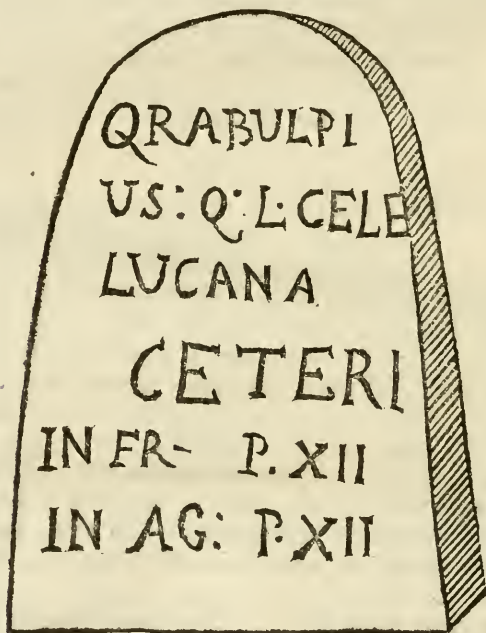 QRABULPI
US: Q: L· CELE
LUCANA
CETERI
IN FR- P. XII
IN AG: P. XII